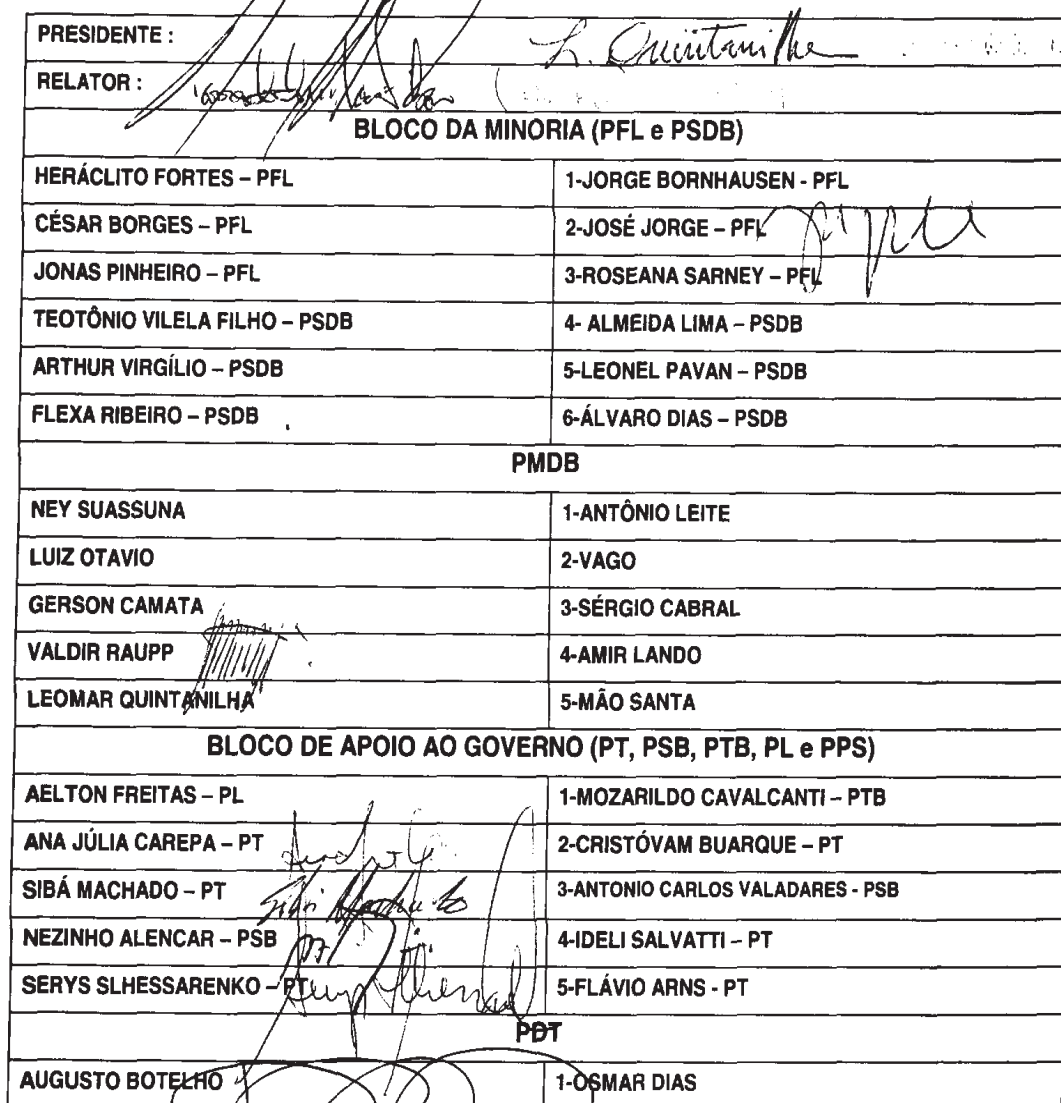 PRESIDENTE : L. Quintanilha
RELATOR :
BLOCO DA MINORIA (PFL e PSDB)
HERÁCLITO FORTES – PFL 1-JORGE BORNHAUSEN - PFL
CÉSAR BORGES – PFL 2-JOSÉ JORGE – PFL
JONAS PINHEIRO – PFL 3-ROSEANA SARNEY – PFL
TEOTÔNIO VILELA FILHO – PSDB 4- ALMEIDA LIMA – PSDB
ARTHUR VIRGÍLIO – PSDB 5-LEONEL PAVAN – PSDB
FLEXA RIBEIRO – PSDB 6-ÁLVARO DIAS – PSDB
PMDB
NEY SUASSUNA 1-ANTÔNIO LEITE
LUIZ OTAVIO 2-VAGO
GERSON CAMATA 3-SÉRGIO CABRAL
VALDIR RAUPP 4-AMIR LANDO
LEOMAR QUINTANILHA 5-MÃO SANTA
BLOCO DE APOIO AO GOVERNO (PT, PSB, PTB, PL e PPS)
AELTON FREITAS – PL 1-MOZARILDO CAVALCANTI – PTB
ANA JÚLIA CAREPA – PT 2-CRISTÓVAM BUARQUE – PT
SIBÁ MACHADO – PT Sibá Machado 3-ANTONIO CARLOS VALADARES - PSB
NEZINHO ALENCAR – PSB 4-IDELI SALVATTI – PT
SERYS SLHESSARENKO – PT 5-FLÁVIO ARNS - PT
PDT
AUGUSTO BOTELHO 1-OSMAR DIAS